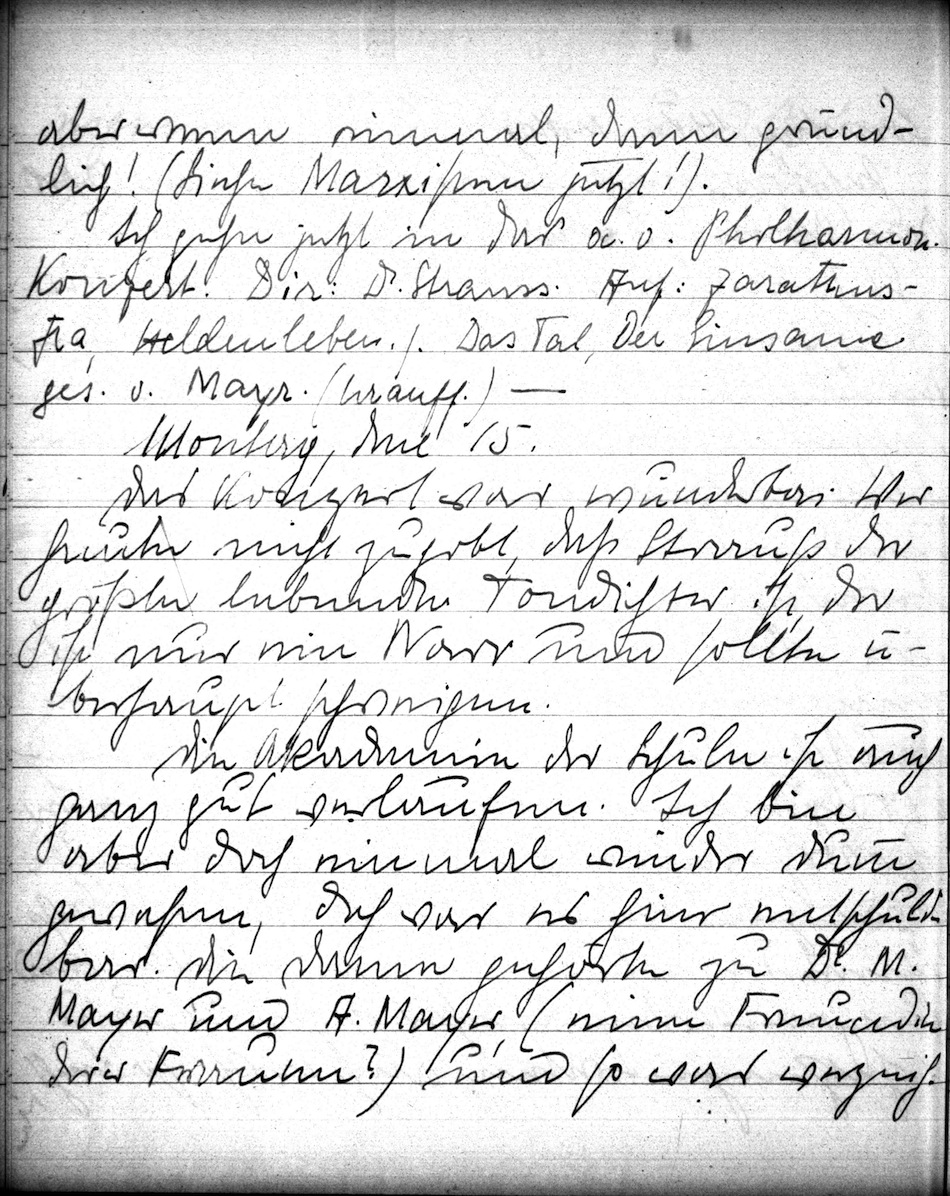 aber wenn einmal, dann gründ-
lich! (Siehe Marxismus jetzt!).
Ich gehe jetzt in das a. o. Philharmon.
Konzert. Dir: Dr. Strauss. Auf: Zarathus-
tra, Heldenleben. /. Das Tal, Der Einsame
ges. v. Mayr. (Krauss.) —
Montag, den 15.
Das Konzert war wunderbar. Wer
heute nicht zugibt, daß Strauß der
größte lebende Tondichter ist, der
ist nur ein Narr und sollte ü-
berhaupt schweigen.
Die Akademie der Schule ist auch
ganz gut verlaufen. Ich bin
aber doch einmal wieder dumm
gewesen, doch war es hier entschuld-
bar. Die Damen gehörten zu Dr. M.
Mayer und A. Mayer, (eine Freundin
derer Frauen?) und so war verzeih-